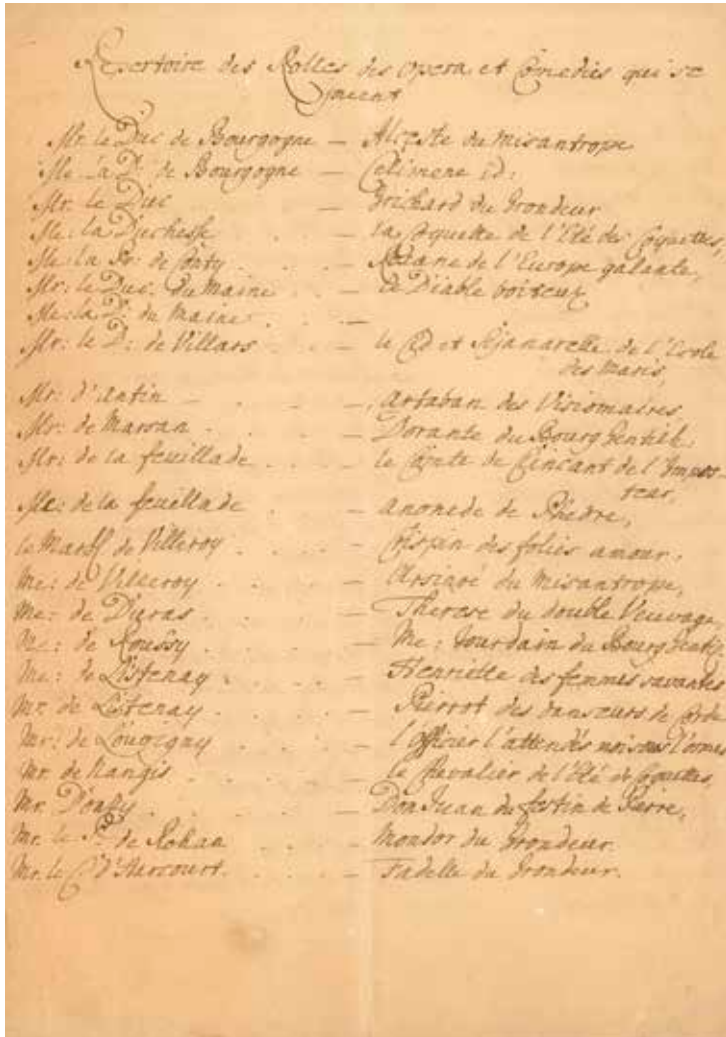 Repertoire des Rolles des Opera et Comedies qui se
jouent
Mr. le Duc de Bourgogne — Alceste du Misantrope
Me. la D: de Bourgogne — Celimene id:
Mr. le Duc — Grichard du Grondeur
Me: la Duchesse — la Coquette de l'Eté des Coquettes,
Me: la Pr: de Conty — de l'Europe galante,
Mr: le Duc: du Maine — le Diable boiteux
Me: la D: du Maine —
Mr: le D: de Villars — le Cid et Sganarelle de l'Ecole
des Maris,
Mr: d'Antin — Artaban des Visionnaires
Mr: de Marsan — Dorante du Bourg Gentilh:
Mr: de la feuillade — le Comte de de l'Impos-
teur,
Me: de la feuillade — de Phedre,
le Marl de Villeroy — Crispin des folies amour.
Me: de Villeroy — Arsinoé du Misantrope,
Me: de Duras — Therese du double Veuvage,
Me: de Roussy — Me: Jourdain du Bourg Gentil:
Me: de Listenay — Henriette des femmes savantes
Mr. de Listenay — Pierrot des danseurs de Corde
Mr: de Louvigny — l'officier l'attendés moi sous l'ormes
Mr. de Nangis — le Chevalier de l'Eté des Coquettes,
Mr. — Don Juan du festin de Pierre,
Mr. le Pr. de Rohan — Mondor du Grondeur.
Mr. le C. d'Harcourt — Fadelle du Grondeur.